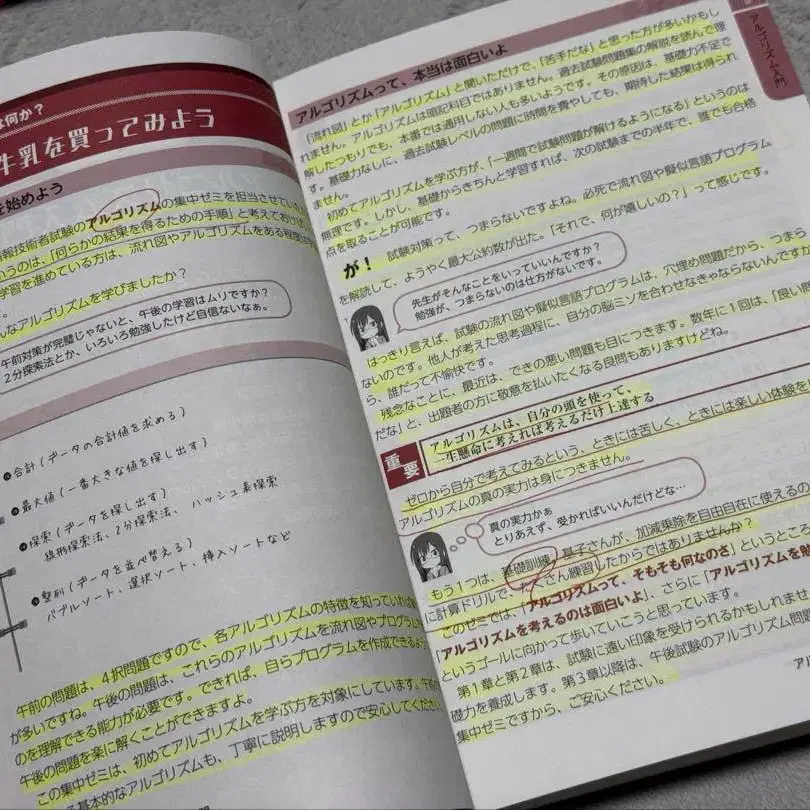 は何か?
牛乳を買ってみよう
を始めよう
情報技術者試験のアルゴリズムの集中ゼミを担当させてい
いうのは、「何らかの結果を得るための手順」と考えておけば
学習を進めている方は、流れ図やアルゴリズムをある程度
んなアルゴリズムを学びましたか?
午前対策が完璧じゃないと、午後の学習はムリですか?
2分探索法とか、いろいろ勉強したけど自信ないなぁ。
合計(データの合計値を求める)
最大値(一番大きな値を探し出す)
探索(データを探し出す)
線形探索法、2分探索法、ハッシュ表探索
整列(データを並べ替える)
バブルソート、選択ソート、挿入ソートなど
午前の問題は、4択問題ですので、各アルゴリズムの特徴を知っていれば
が多いですね。午後の問題は、これらのアルゴリズムを流れ図やプログラム
のを理解できる能力が必要です。できれば、自らプログラムを作成できるよう
午後の問題を楽に解くことができますよ。
この集中ゼミは、初めてアルゴリズムを学ぶ方を対象にしています。午前
る基本的なアルゴリズムも、丁寧に説明しますので安心してくださ
アルゴリズム入門
アルゴリズムって、本当は面白いよ
「流れ図」とか「アルゴリズム」と聞いただけで、「苦手だな」と思った方が多いかもし
れません。アルゴリズムは暗記科目ではありません。過去試験問題集の解説を読んで理
解したつもりでも、本番では通用しない人も多いようです。その原因は、基礎力不足で
す。基礎力なしに、過去試験レベルの問題に時間を費やしても、期待した結果は得られ
ません。
初めてアルゴリズムを学ぶ方が、「一週間で試験問題が解けるようになる」というのは
無理です。しかし、基礎からきちんと学習すれば、次の試験までの半年で、誰でも合格
点を取ることが可能です。
が! 試験対策って、つまらないですよね。必死で流れ図や擬似言語プログラム
を解読して、ようやく最大公約数が出た。「それで、何が嬉しいの?」って感じです。
先生がそんなことをいっていいんですか?
勉強が、つまらないのは仕方がないです。
はっきり言えば、試験の流れ図や擬似言語プログラムは、穴埋め問題だから、つまら
ないのです。他人が考えた思考過程に、自分の脳ミソを合わせなきゃならないんですか
ら、誰だって不愉快です。
残念なことに、最近は、できの悪い問題も目につきます。数年に1回は、「良い問
だな」と、出題者の方に敬意を払いたくなる良問もありますけどね。
重要
アルゴリズムは、自分の頭を使って、
一生懸命に考えれば考えるだけ上達する
ゼロから自分で考えてみるという、ときには苦しく、ときには楽しい体験を
アルゴリズムの真の実力は身につきません。
真の実力かぁ
とりあえず、受かればいいんだけどな…
もう1つは、基礎訓練。基子さんが、加減乗除を自由自在に使えるの
に計算ドリルで、たくさん練習したからではありませんか?
このゼミでは、「アルゴリズムって、そもそも何なのさ」というところ
「アルゴリズムを考えるのは面白いよ」、さらに「アルゴリズムを勉
というゴールに向かって歩いていこうと思っています。
第1章と第2章は、試験に遠い印象を受けられるかもしれませ
礎力を養成します。第3章以降は、午後試験のアルゴリズム問題
集中ゼミですから、ご安心ください。